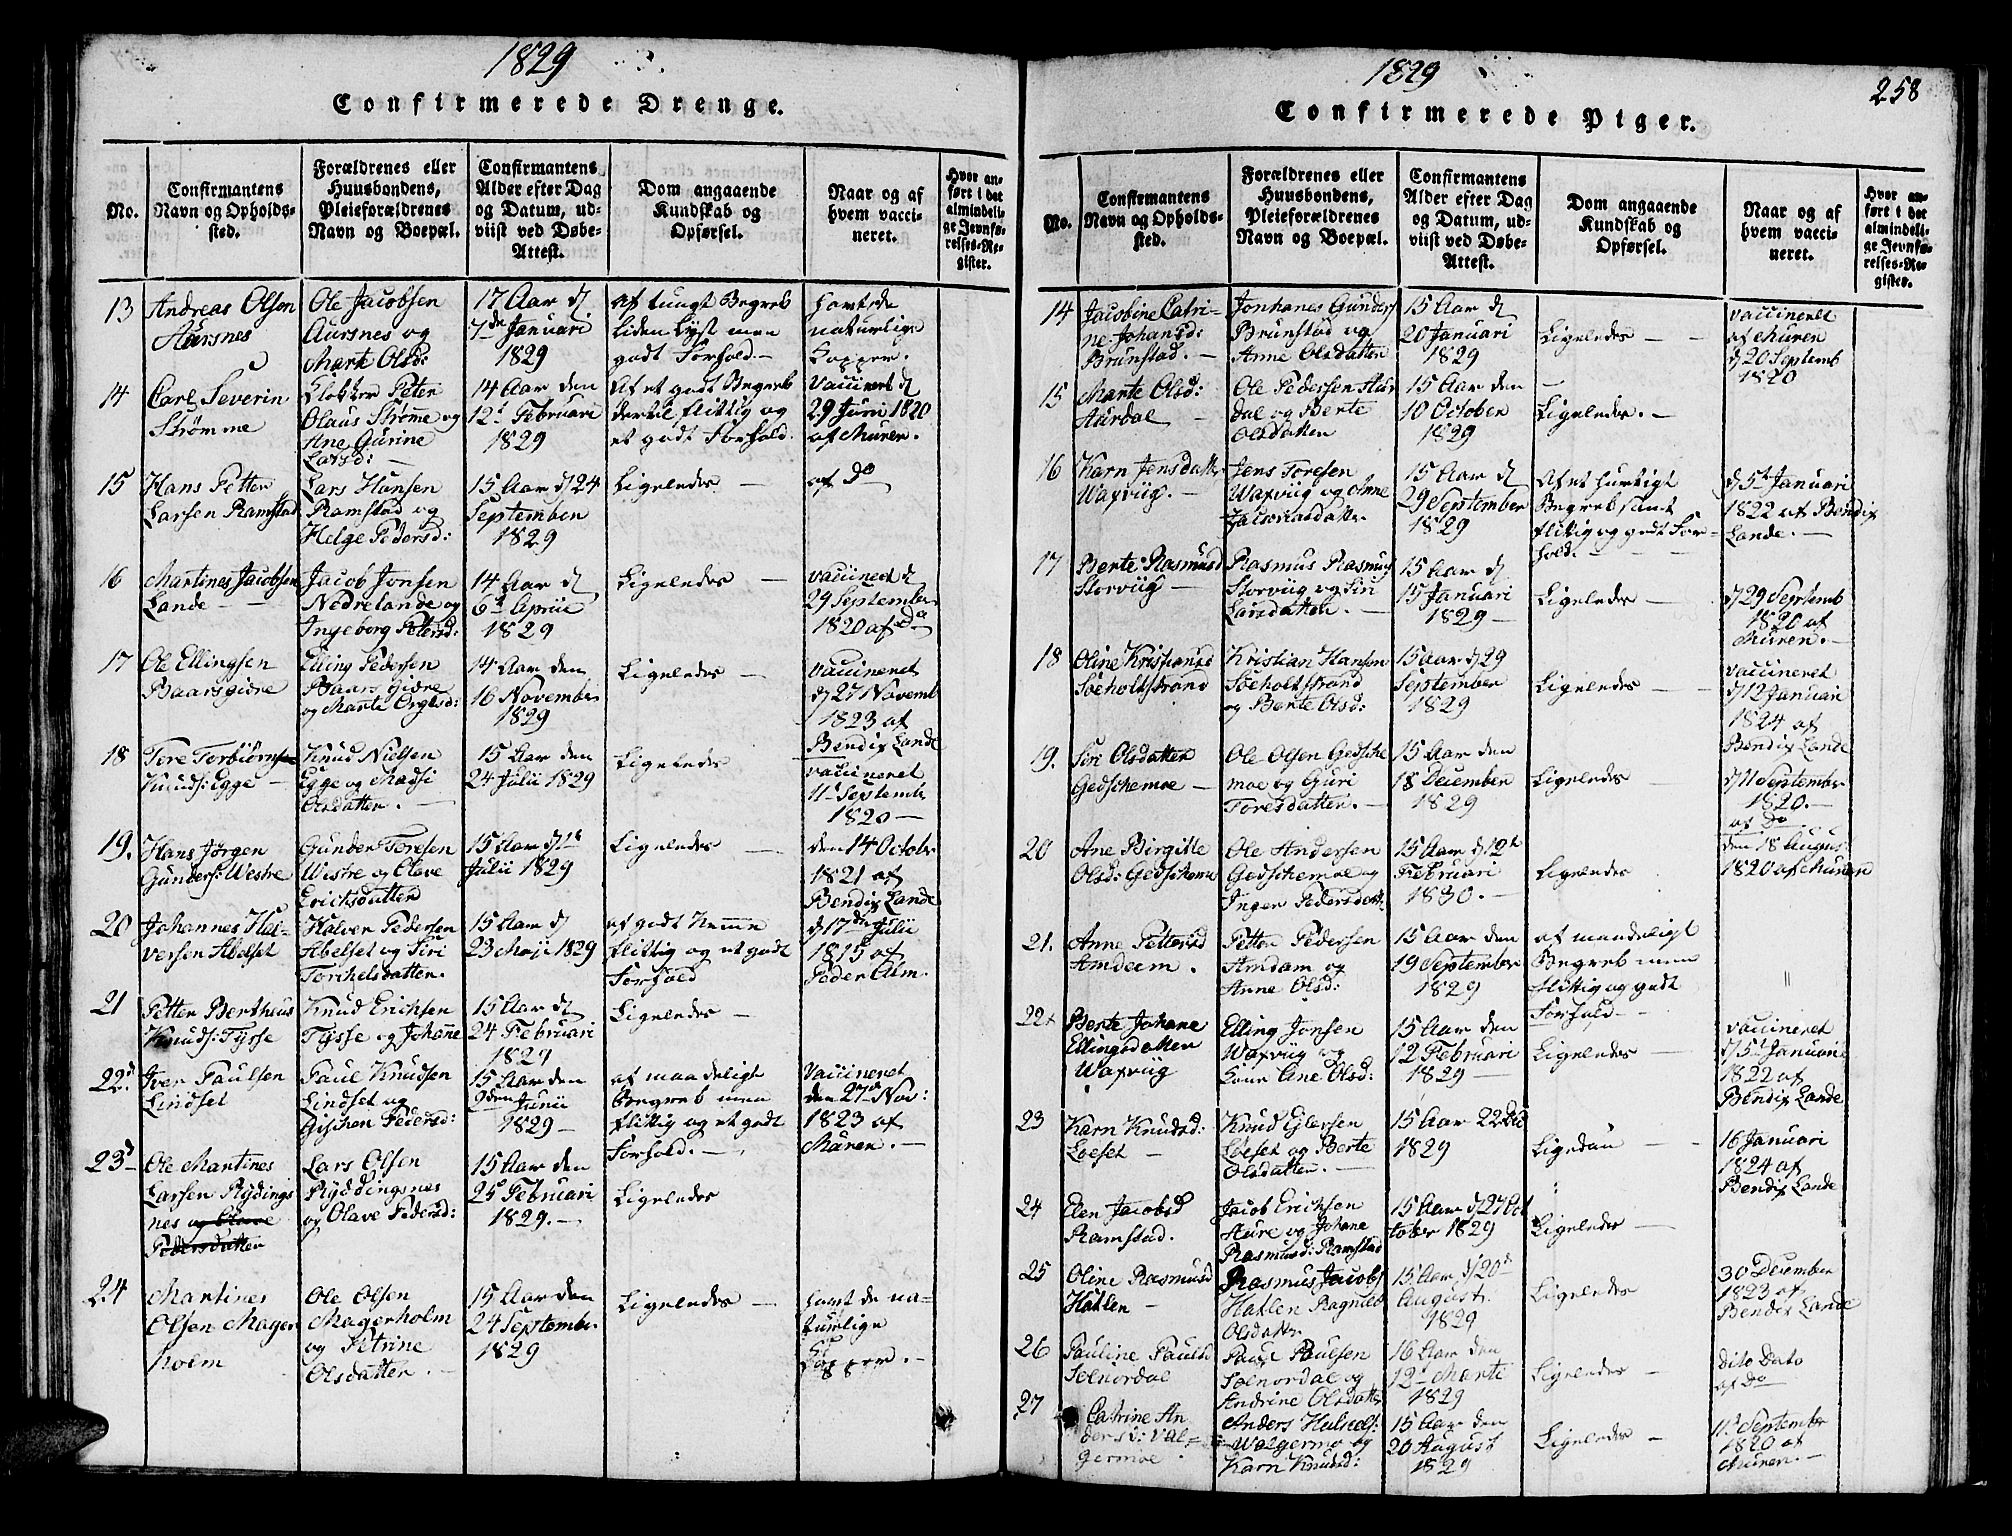 1829
Confirmerede Drenge.
No.
Confirmantens
Navn og Opholds-
sted.
Forældrenes eller
Huusbondens,
Pleieforældrenes
Navn og Boepæl.
Confirmantens
Alder efter Dag
og Datum, ud-
viist ved Døbe-
Attest.
Dom angaaende
Kundskab og
Opførsel.
Naar og af
hvem vacci-
neret.
Hvor an-
ført i det
almindeli-
ge Jevnfø-
relses-Re-
gister.
13
Andreas Olsen
Aursnes
Ole Jacobsen
Aursnes og
Marte Olsd:
17 Aar d
7de Januari
1829
af tungt Begreb
liden Lyst men
godt Forhold –
havt de
naturlige
Kopper.
14
Carl Severin
Strømme
Klokker Peter
Olaus Strøme og
Ane Gurine
Larsd: –
14 Aar den
12t Februari
1829
Af et godt Begreb
dertil flittig og
et godt Forhold.
Vaccineret d
29 Juni 1820
af Muren.
15
Hans Petter
Larsen Ramstad
Lars Hansen
Ramstad og
Helge Pedersd:
15 Aar d 24
September
1829
Ligeledes –
af Do
16
Martines Jacobsen
Lande – –
Jacob Jonsen
Nedrelande og
Ingeborg Petersd:
14 Aar d
6t Aprii
1829
Ligeledes –
vaccineret d
29 September
1820 af Do
17
Ole Ellingsen
Baarsgiære
Elling Pedersen
Baarsgiære
og Marte Orgelsd:
14 Aar den
16 November
1829
Ligeledes –
Vaccineret
d 27 Novemb
1823 af
Bendix Lande
18
Tore Torbiørnsen
Knuds: Egge –
Knud Nielsen
Egge og Madsi
Olsdatter. –
15 Aar den
24 Julii 1829
Ligeledes
vaccineret
11t Septemb
1820 –
19.
Hans Jørgen
Gunders: Westre
Gunder Toresen
Westre og Olave
Ericksdatter
15 Aar d 18
Julii 1829
Ligeledes –
den 14 Octobr
1821 af
Bendix Lande
20
Johannes Hal-
versen Abelset
Halver Pedersen
Abelset og Siri
Torchelsdatter.
15 Aar d
23 Maji 1829
af godt Nemme
flittig og et godt
Forhold
d 17de Julii
1815 af
Peder Alm.
21
Petter Bertheus
Knuds: Tysse
Knud Erichsen
Tysse og Johanne
15 Aar d
24 Februari
1829
Ligeledes –
22
Iver Paulsen
Lindset
Paul Knudsen
Lindset og
Gischen Pedersd:
15 Aar den
9den Junii
1829 –
af maadeligt
Begreb men
flittig og et godt
Forhold. –
Vaccineret
den 27de Nov:
1823 af
Muren. –
23
Ole Martines
Larsen Rydings
nes og Olave
Pedersdatter
Lars Olsen
Ryddingsnes
og Olave Pedersd:
15 Aar den
25t Februari
1829. –
Ligeledes
24
Martines
Olsen Mager
holm
Ole Olsen
Magerholm
og Petrine
Olsdatter. –
15 Aar den
24 September
1829
Ligeledes –
havt de na-
turlige
Kopper. –
1829
258
Confirmerede Piger.
No.
Confirmantens
Navn og Opholds-
sted.
Forældrenes eller
Huusbondens,
Pleieforældrenes
Navn og Boepæl.
Confirmantens
Alder efter Dag
og Datum, ud-
viist ved Døbe-
Attest.
Dom angaaende
Kundskab og
Opførsel.
Naar og af
hvem vacci-
neret.
Hvor an-
ført i det
almindeli-
ge Jevnfø-
relses-Re-
gister.
14
Jacobine Catri-
ne Johansd:
Brunstad. –
Jonhanes Gunders
Brunstad og
Anne Olsdatter
15 Aar d
20 Januari
1829
Ligeledes – –
vaccineret
af Muren
d 20 Septemb
1820
15
Marte Olsd:
Aurdal –
Ole Pedersen Aur
dal og Berte
Olsdatter
15 Aar den
10 October
1829
Ligeledes. –
16
Karn Jensdatter
Waxviig. –
Jens Toresen
Waxviig og Ane
15 Aar d
29 September
1829
Af et hurtigt
Begreb samt
flittig og godt For-
hold. –
d 5t Januari
1822 af Bendix
Lande. –
17
Berte Rasmusd
Storviig –
Rasmus Rasmus
Storviig og Siri
Larsdatter. –
15 Aar d
15 Januari
1829
Ligeledes –
d 29 Septemb
1820 af
Muren. –
18
Oline Kristiansd
Søeholtstrand
Kristian Hansen
Søeholtstrand
og Berte Olsd:
15 Aar d 29
September
1829
Ligeledes –
vaccineret
d 12 Januari
1824 af
Bendix Lande
19.
Siri Olsdatter
Gedschemoe –
Ole Olsen Gedsche
moe og Guri
Toresdatter. –
15 Aar den
18 December
1829
Ligeledes –
d 11 September
1820. –
af Do
20
Ane Birgitte
Olsd: Gedschemo
Ole Andersen
Gedschemoe og
Inger Pedersdatt.
15 Aar d 12t
Februari
1830. –
Ligeledes
den 18 Augus:
1820 af Muren
21.
Anne Pettersd
Amdeem.
Petter Pedersen
Amdam og
Anne Olsd:
15 Aar den
19 September
1829
af maadeligt
Begreb men
flittig og godt
Forhold –
"
22
Berte Johane
Ellingsdatter
Waxviig
Elling Jonsen
Waxviig og
Kone Ane Olsd:
15 Aar den
12 Februari
1829 –
Ligeledes –
vaccineret
d 5t Januari
1822 af
Bendix Lande
23
Karn Knudsd:
Løeset –
Knud Ejlersen
Løeset og Berte
Olsdatter. –
15 Aar 22 Dec
1829
Ligedan – –
16 Januari
1824 af
Bendix Lande
24
Elen Jacobsd
Ramstad.
Jacob Erichsen
Aure og Johane
Rasmusd: Ramstad
15 Aar d 27 Oc
tober 1829
Ligeledes –
25
Oline Rasmusd
Hatlen –
Rasmus Jacobs
Hatlen Ragnild
Olsdatter
15 Aar d 20d
August.
1829
Ligeledes
30 December
1823 af
Bendix Lande
26
Pauline Paulsd
Solnordal
Paul Paulsen
Solnordal og
Andrine Olsdatter
16 Aar den
12t Marti
1829
Ligeledes –
dito Dato
af Do
27
Catrine An
dersd: Val-
germoe.
Anders Halvels:
Walgermo og
Karn Knudsd:
15 Aar den
20 August
1829
Ligeledes –
11t September
1820 af
Muren. –